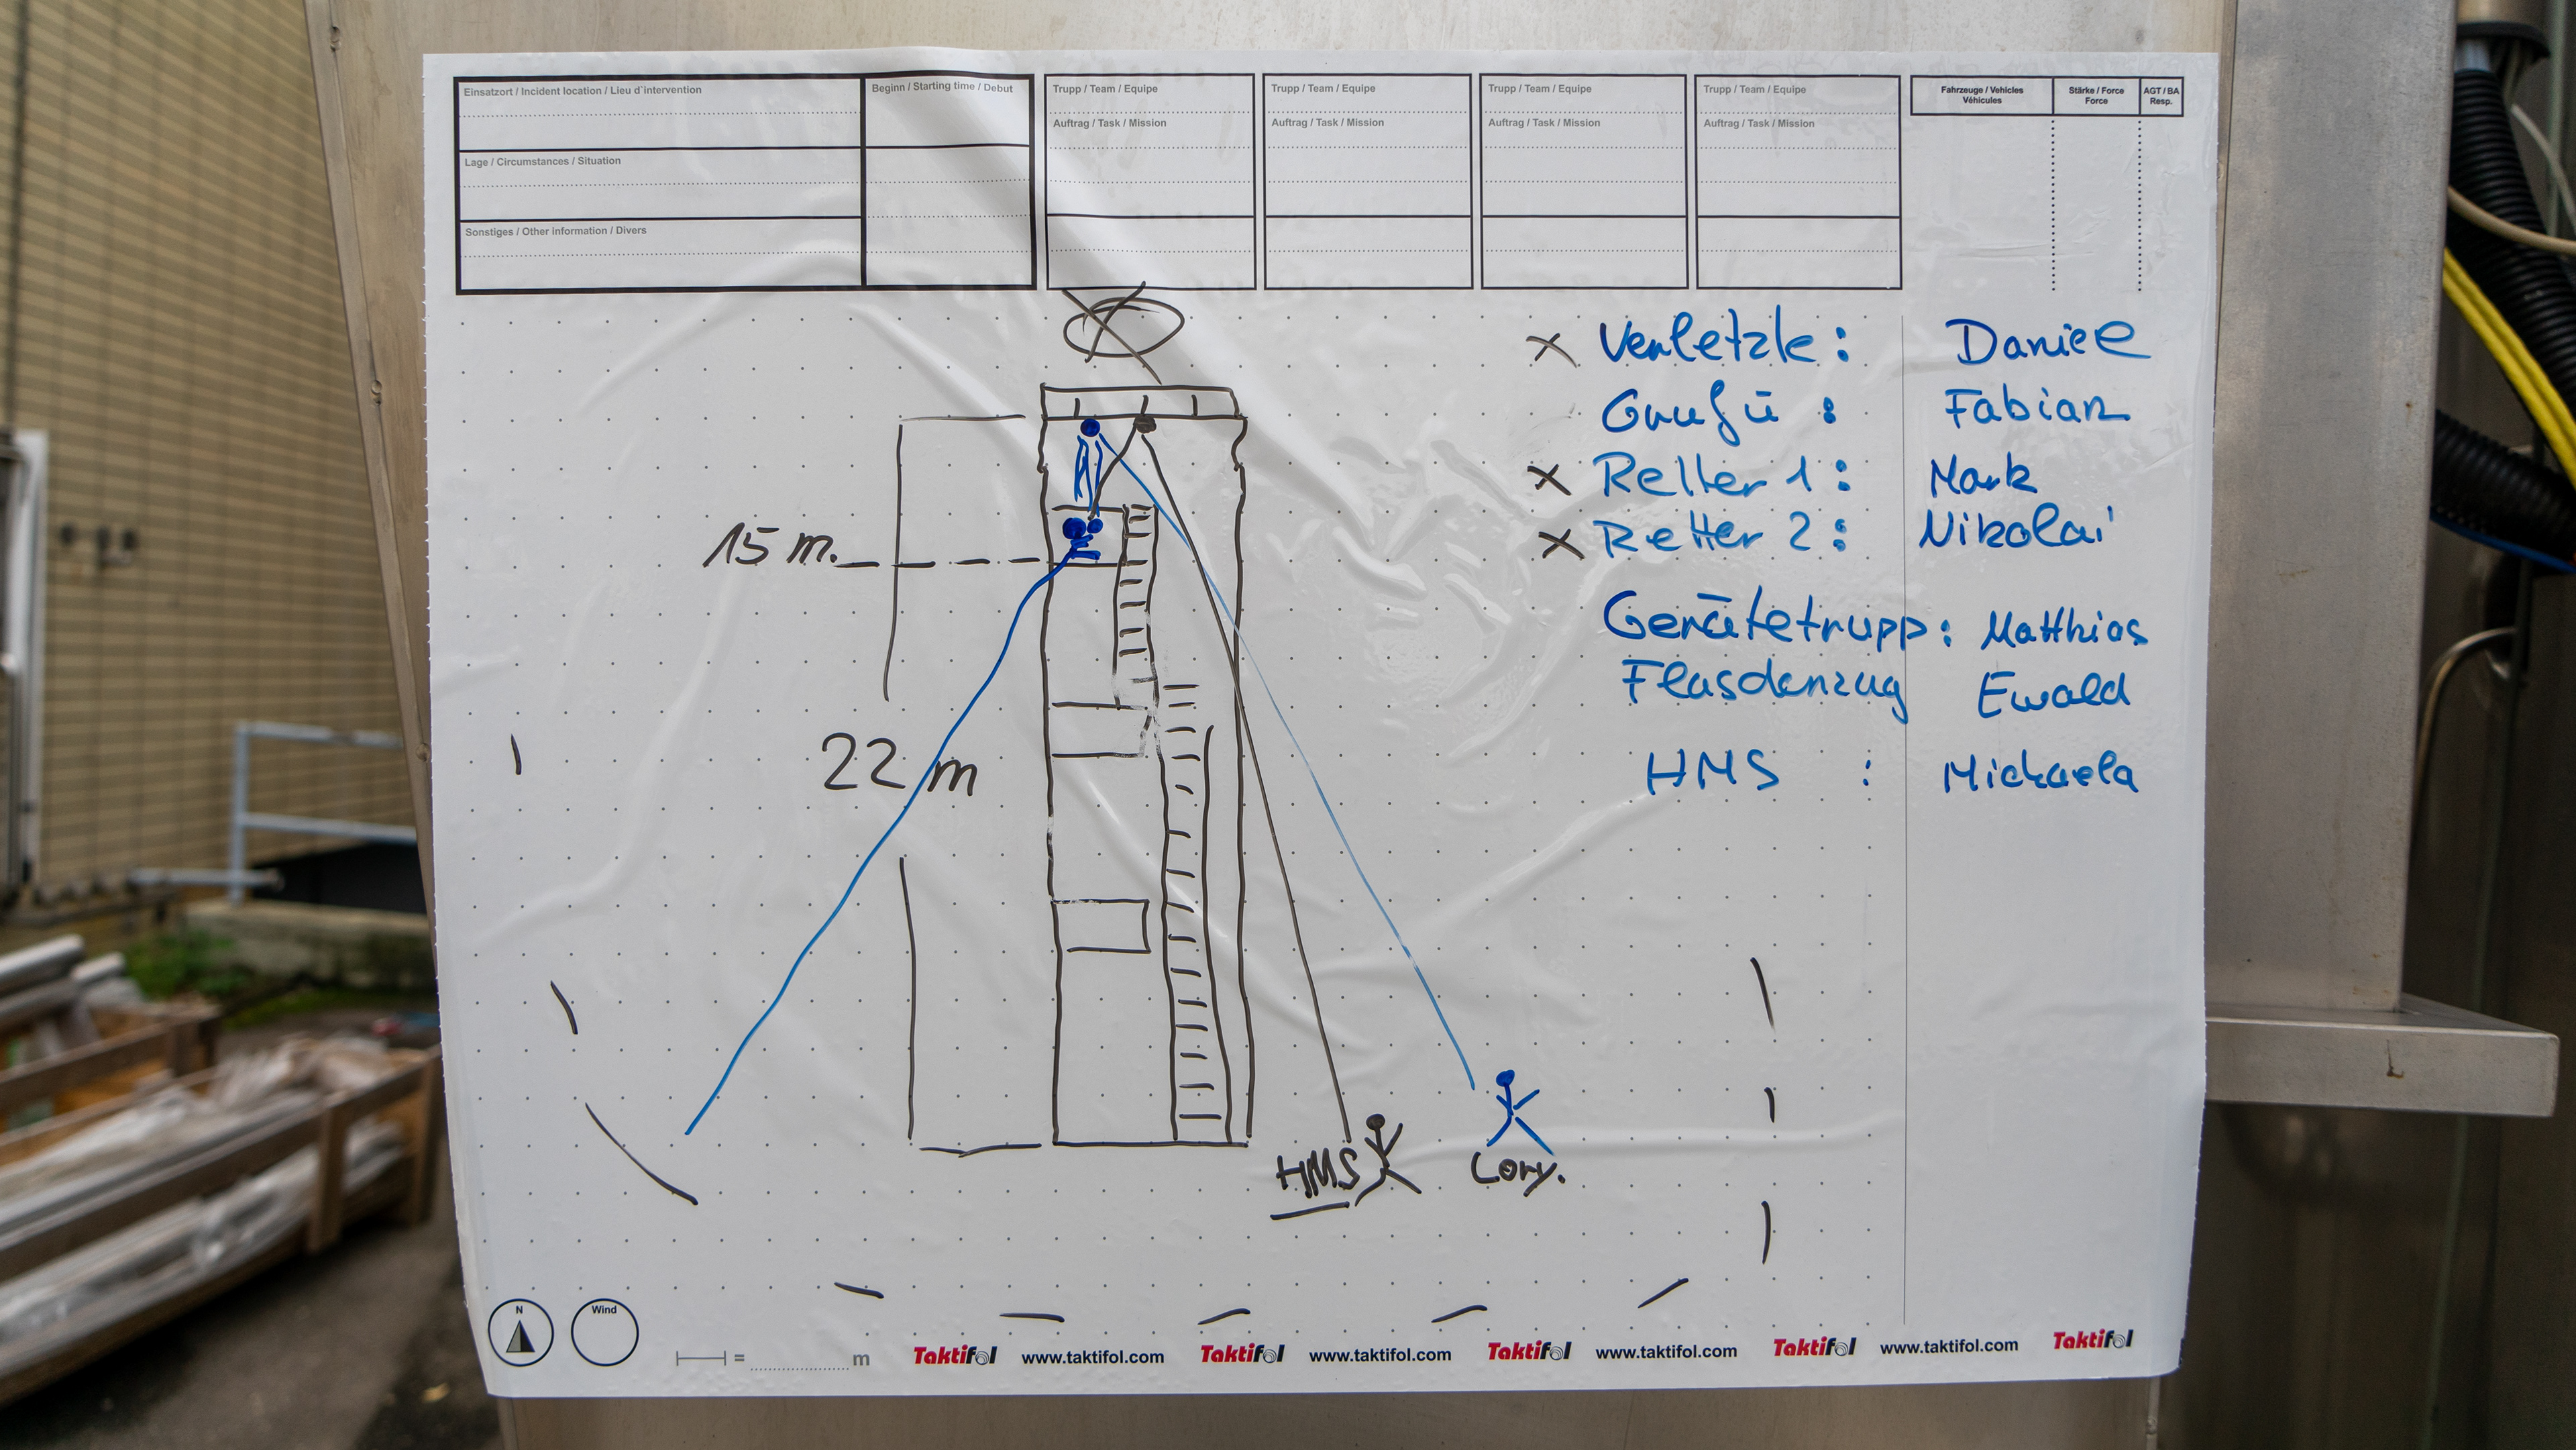 Einsatzort / Incident location / Lieu d´intervention
Beginn / Starting time / Debut
Lage / Circumstances / Situation
Sonstiges / Other information / Divers
Trupp / Team / Equipe
Auftrag / Task / Mission
Trupp / Team / Equipe
Auftrag / Task / Mission
Trupp / Team / Equipe
Auftrag / Task / Mission
Trupp / Team / Equipe
Auftrag / Task / Mission
Fahrzeuge / Vehicles
Véhicules
Stärke / Force
Force
AGT / BA
Resp.
x Verletzte: Daniel
Grufü: Fabian
x Retter 1: Mark
x Retter 2: Nikolai
Gerätetrupp: Matthias
Flaschenzug Ewald
HMS: Michaela
15 m.
22 m
HMS
Cory.
N
Wind
= m
Taktifol www.taktifol.com Taktifol www.taktifol.com Taktifol www.taktifol.com Taktifol www.taktifol.com Taktifol